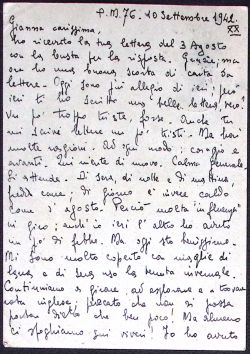 P.M. 76. 10 Settembre 1942.
XX
Gianna carissima,
ho ricevuto la tua lettera del 3 Agosto
con la busta per la risposta. Grazie; ma
ora ho una buona scorta di carta da
lettere. Oggi sono più allegro di ieri; però
ieri ti ho scritto una bella lettera, vero?
Un po' troppo triste, forse. Anche tu
mi scrivi lettere un po' tristi. Ma hai
molte ragioni. Ad ogni modo; coraggio e
avanti. Qui niente di nuovo. Calma generale.
Si attende. Di sera, di notte e di mattina,
fredda cane. di giorno è invece caldo
come d'agosto. Perciò molta "influenza"
in giro; anch'io ieri l'altro ho avuto
un po' di febbre. Ma oggi sto benissimo.
Mi sono molto coperto con maglie di
lana e di sera uso la tenuta invernale.
Continuiamo a girare, ad esplorare e a trovare
roba inglese; peccato che non si possa
portar dietro che ben poco! Ma almeno
ci sfoghiamo sui viveri! Io ho avuto